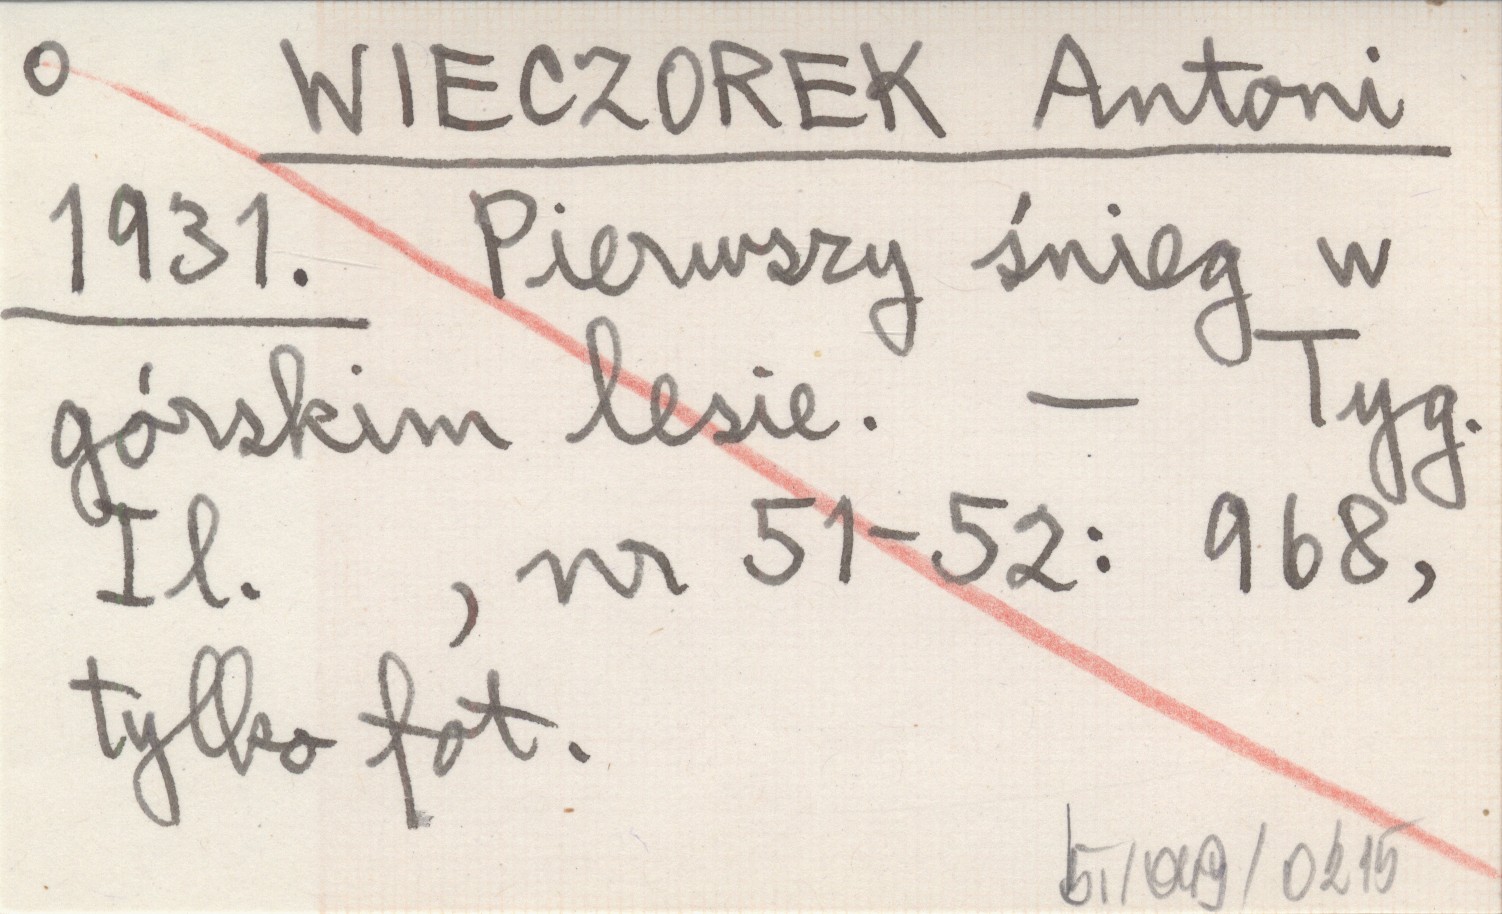 O WIECZOREK Antoni
1931. Pierwszy śnieg w
górskim lesie. — Tyg.
Il. , nr 51-52: 968,
tylko fot.